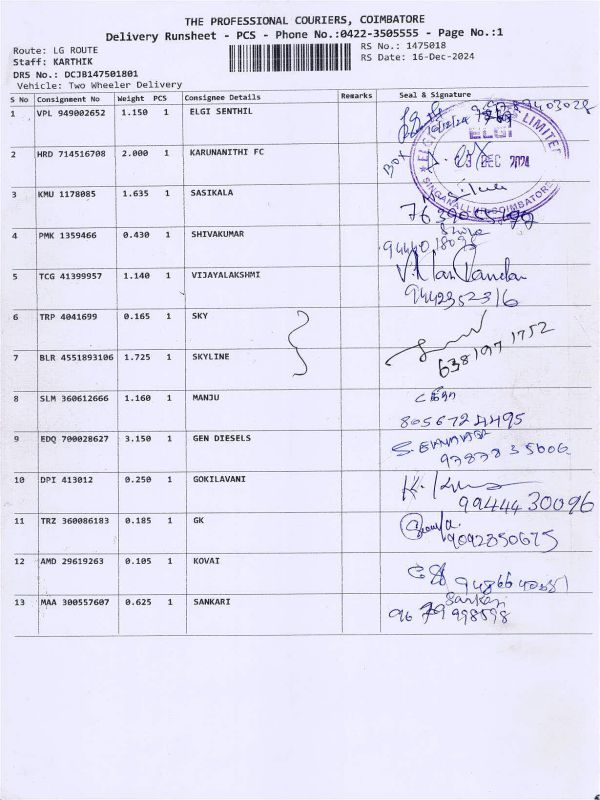 THE PROFESSIONAL COURIERS, COIMBATORE
Delivery Runsheet - PCS - Phone No.:0422-3505555 - Page No.:1
Route: LG ROUTE
RS No.: 1475018
Staff: KARTHIK
RS Date: 16-Dec-2024
DRS No.: DCJB147501801
Vehicle: Two Wheeler Delivery
S No Consignment No Weight PCS Consignee Details Remarks Seal & Signature
1 VPL 949002652 1.150 1 ELGI SENTHIL
2 HRD 714516708 2.000 1 KARUNANITHI FC BOX
ELGI
DEC 2024
SINGANALLUR COIMBATORE
3 KMU 1178085 1.635 1 SASIKALA
4 PMK 1359466 0.430 1 SHIVAKUMAR
5 TCG 41399957 1.140 1 VIJAYALAKSHMI
9442352316
6 TRP 4041699 0.165 1 SKY
7 BLR 4551893106 1.725 1 SKYLINE
6381971752
8 SLM 360612666 1.160 1 MANJU
8056724495
9 EDQ 700028627 3.150 1 GEN DIESELS
10 DPI 413012 0.250 1 GOKILAVANI
9944430096
11 TRZ 360086183 0.185 1 GK
9092850675
12 AMD 29619263 0.105 1 KOVAI
13 MAA 300557607 0.625 1 SANKARI
Sankari
9679998598